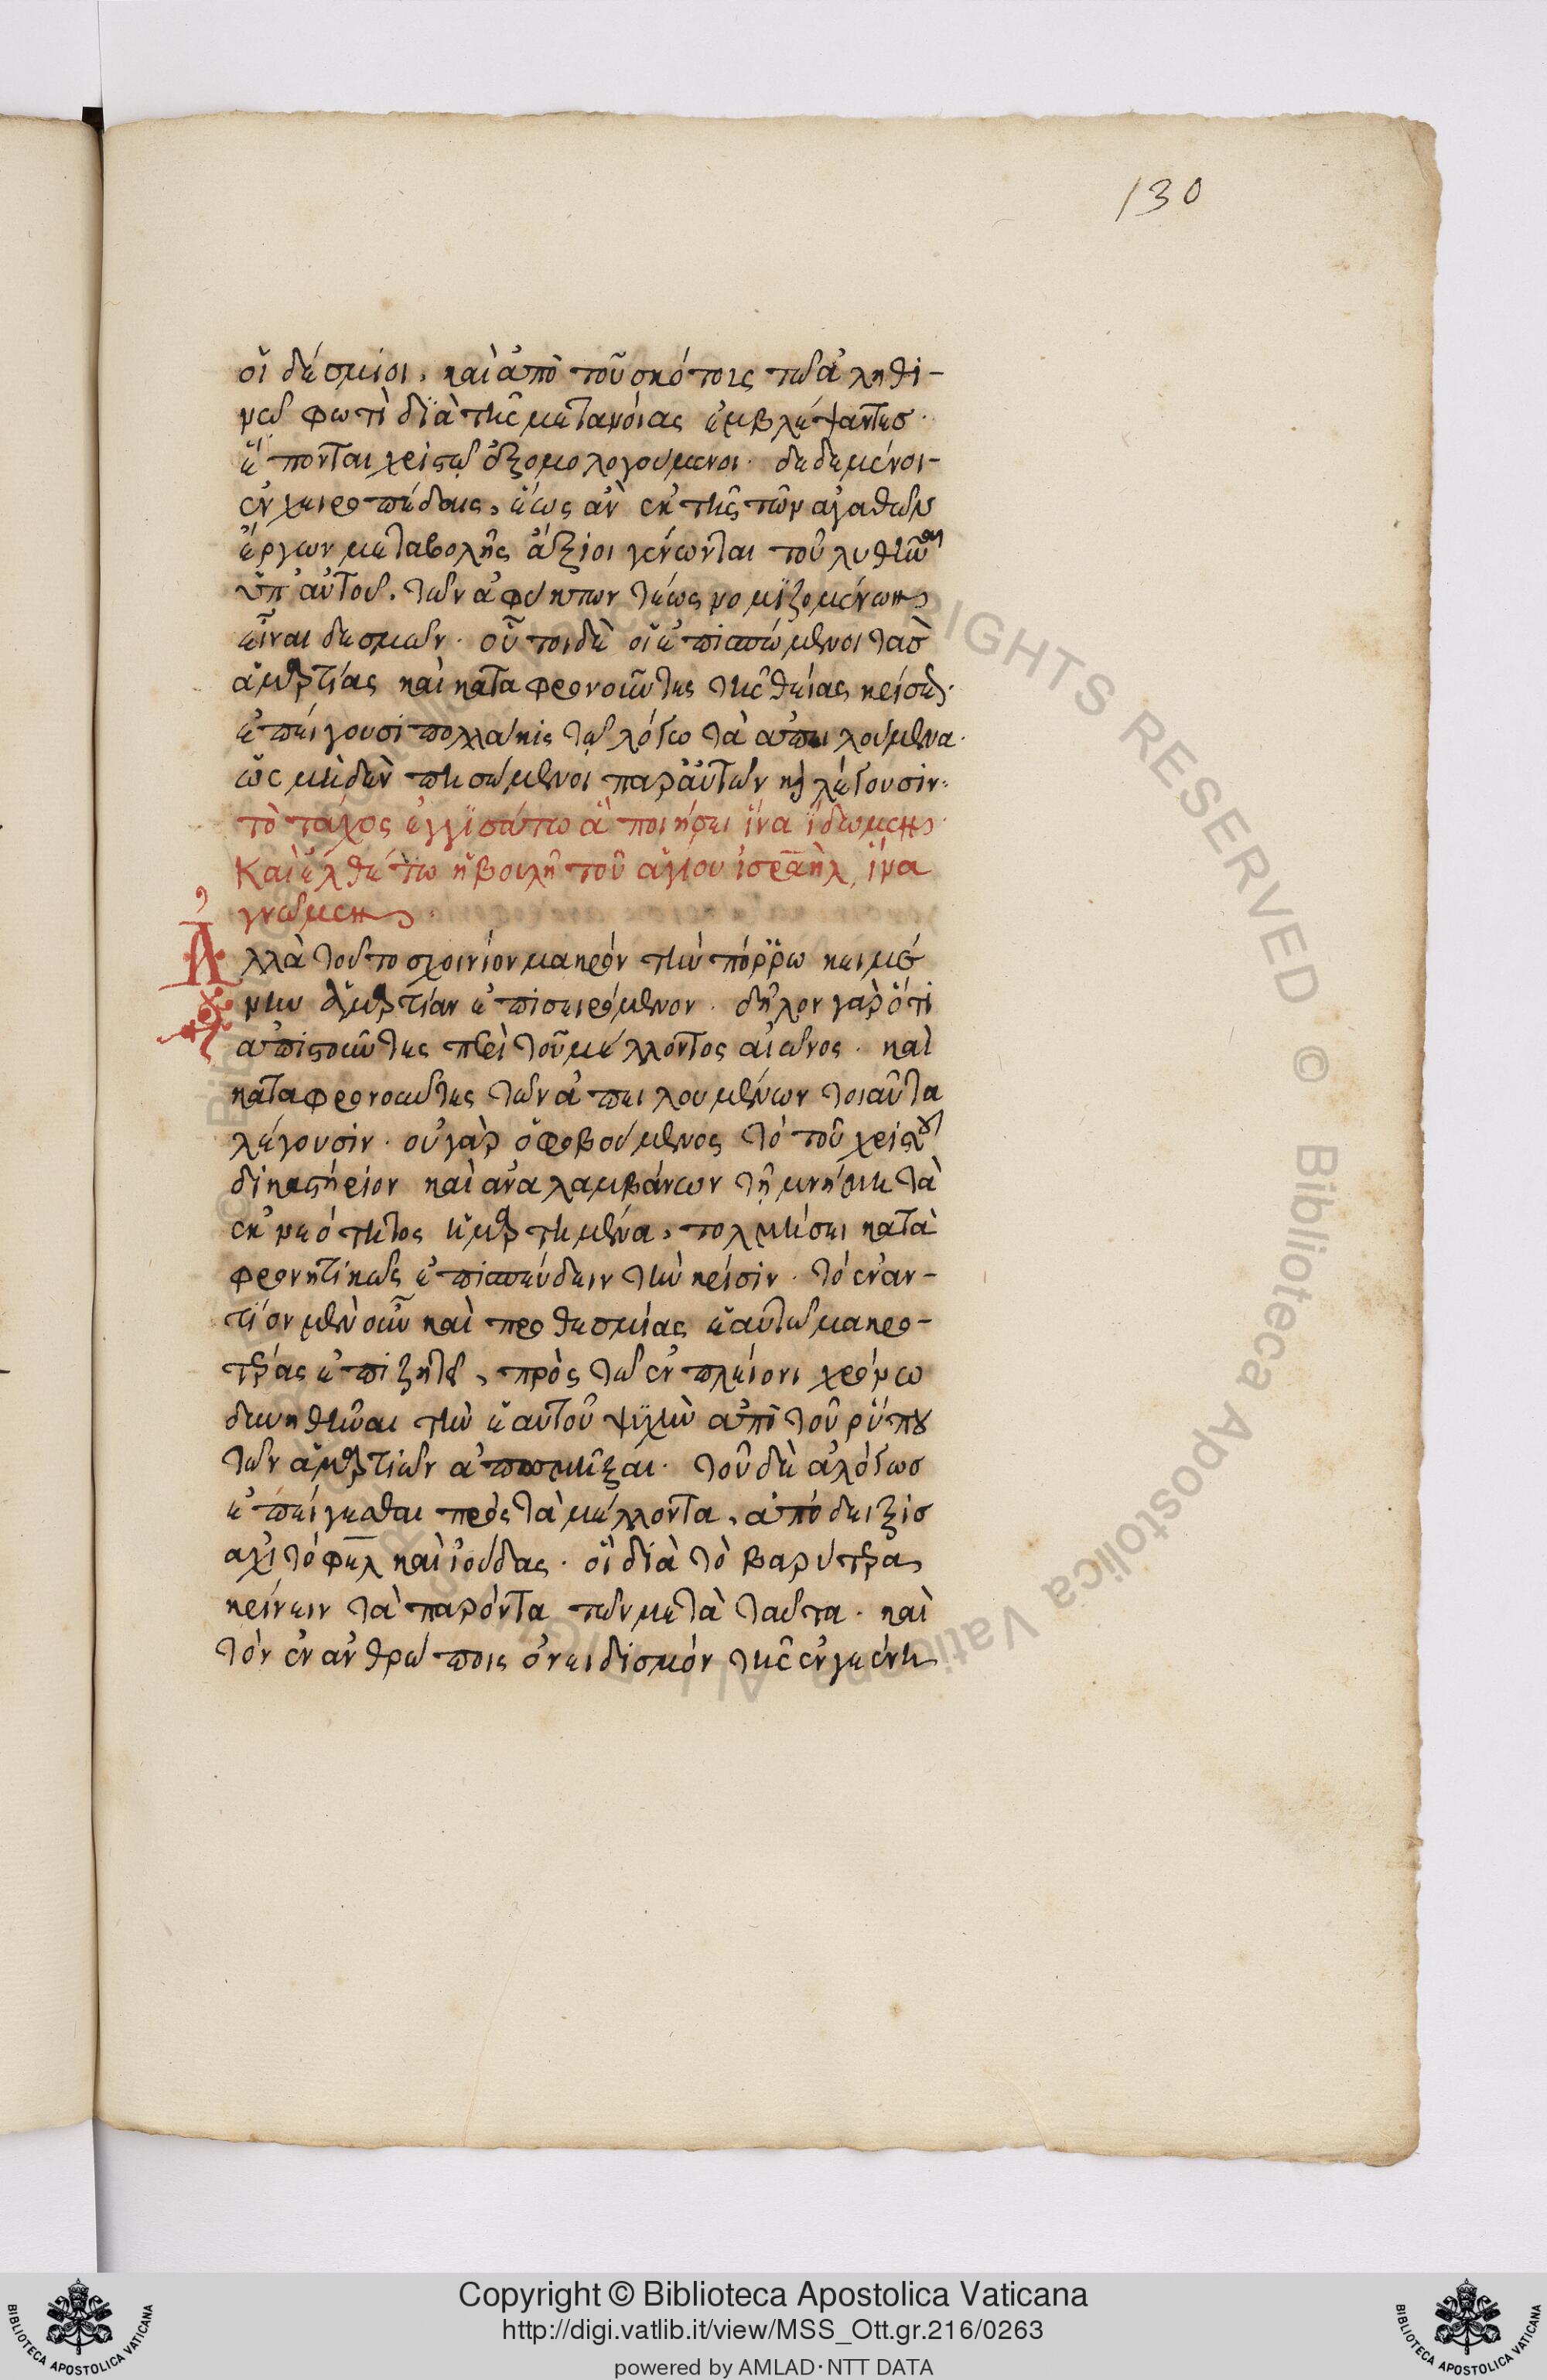 130
οἱ δέσμιοι, καὶ ἀπὸ τοῦ σκότους τῶ ἀληθι-
νῶ φωτὶ διὰ τῆς μετανοίας ἐμβλέψαντες·
ἕπονται χριστῶ ἐξομολογούμενοι· δεδεμένοι-
ἐν χειροπέδαις, ἕως ἂν ἐκ τῆς τῶν ἀγαθῶν
ἔργων μεταβολῆς ἄξιοι γένωνται τοῦ λυθῆναι
ὑπ' αὐτοῦ, τῶν ἀφύκτων τέως νομιζομένων
εἶναι δεσμῶν· οὗτοι δὲ οἱ ἐπισπώμενοι τὰς
ἁμαρτίας καὶ καταφρονοῦντες τῆς θείας κρίσεως·
ἐπείγουσι πολλάκις τῶ λόγω τὰ ἀπειλούμενα·
ὡς μηδὲν πεισόμενοι παρ' αὐτῶν καὶ λέγουσιν·
τὸ τάχος ἐγγισάτω ἃ ποιήσει ἵνα ἴδωμεν·
Καὶ ἐλθέτω ἡ βουλὴ τοῦ ἁγίου ἰσραὴλ, ἵνα
γνῶμεν·
Ἀλλὰ τοῦτο σχοινίον μακρόν τὴν πόρρω κειμέ
νην ἁμαρτίαν ἐπισειρόμενον· δῆλον γὰρ ὅτι
ἀπιστοῦντες περὶ τοῦ μέλλοντος αἰῶνος· καὶ
καταφρονοῦντες τῶν ἀπειλουμένων τοιαῦτα
λέγουσιν· οὐ γὰρ ὁ φοβούμενος τὸ τοῦ χριστοῦ
δικαστήριον καὶ ἀναλαμβάνων τῆ μνήμη τὰ
ἐκ νεότητος ἡμαρτημένα, τολμήσει κατα
φρονητικῶς ἐπισπεύδειν τὴν κρίσιν· τὸ ἐναν-
τίον μὲν οὖν καὶ προθεσμίας ἑαυτῶ μακρο-
τέρας ἐπιζητεῖ, πρὸς τῶ ἐν πλείονι χρόνω
δυνηθῆναι τὴν ἑαυτοῦ ψυχὴν ἀπὸ τοῦ ῥύπου
τῶν ἁμαρτιῶν ἀποσμῆξαι· τοῦ δὲ ἀλόγως
ἐπείγεσθαι πρὸς τὰ μέλλοντα, ἀπόδειξις
ἀχιτόφελ καὶ ἰούδας· οἱ διὰ τὸ βαρύτερα
κρίνειν τὰ παρόντα τῶν μετὰ ταῦτα· καὶ
τὸν ἐν ἀνθρώποις ὀνειδισμόν τῆς ἐν γεένη
Copyright © Biblioteca Apostolica Vaticana
http://digi.vatlib.it/view/MSS_Ott.gr.216/0263
powered by AMLAD·NTT DATA